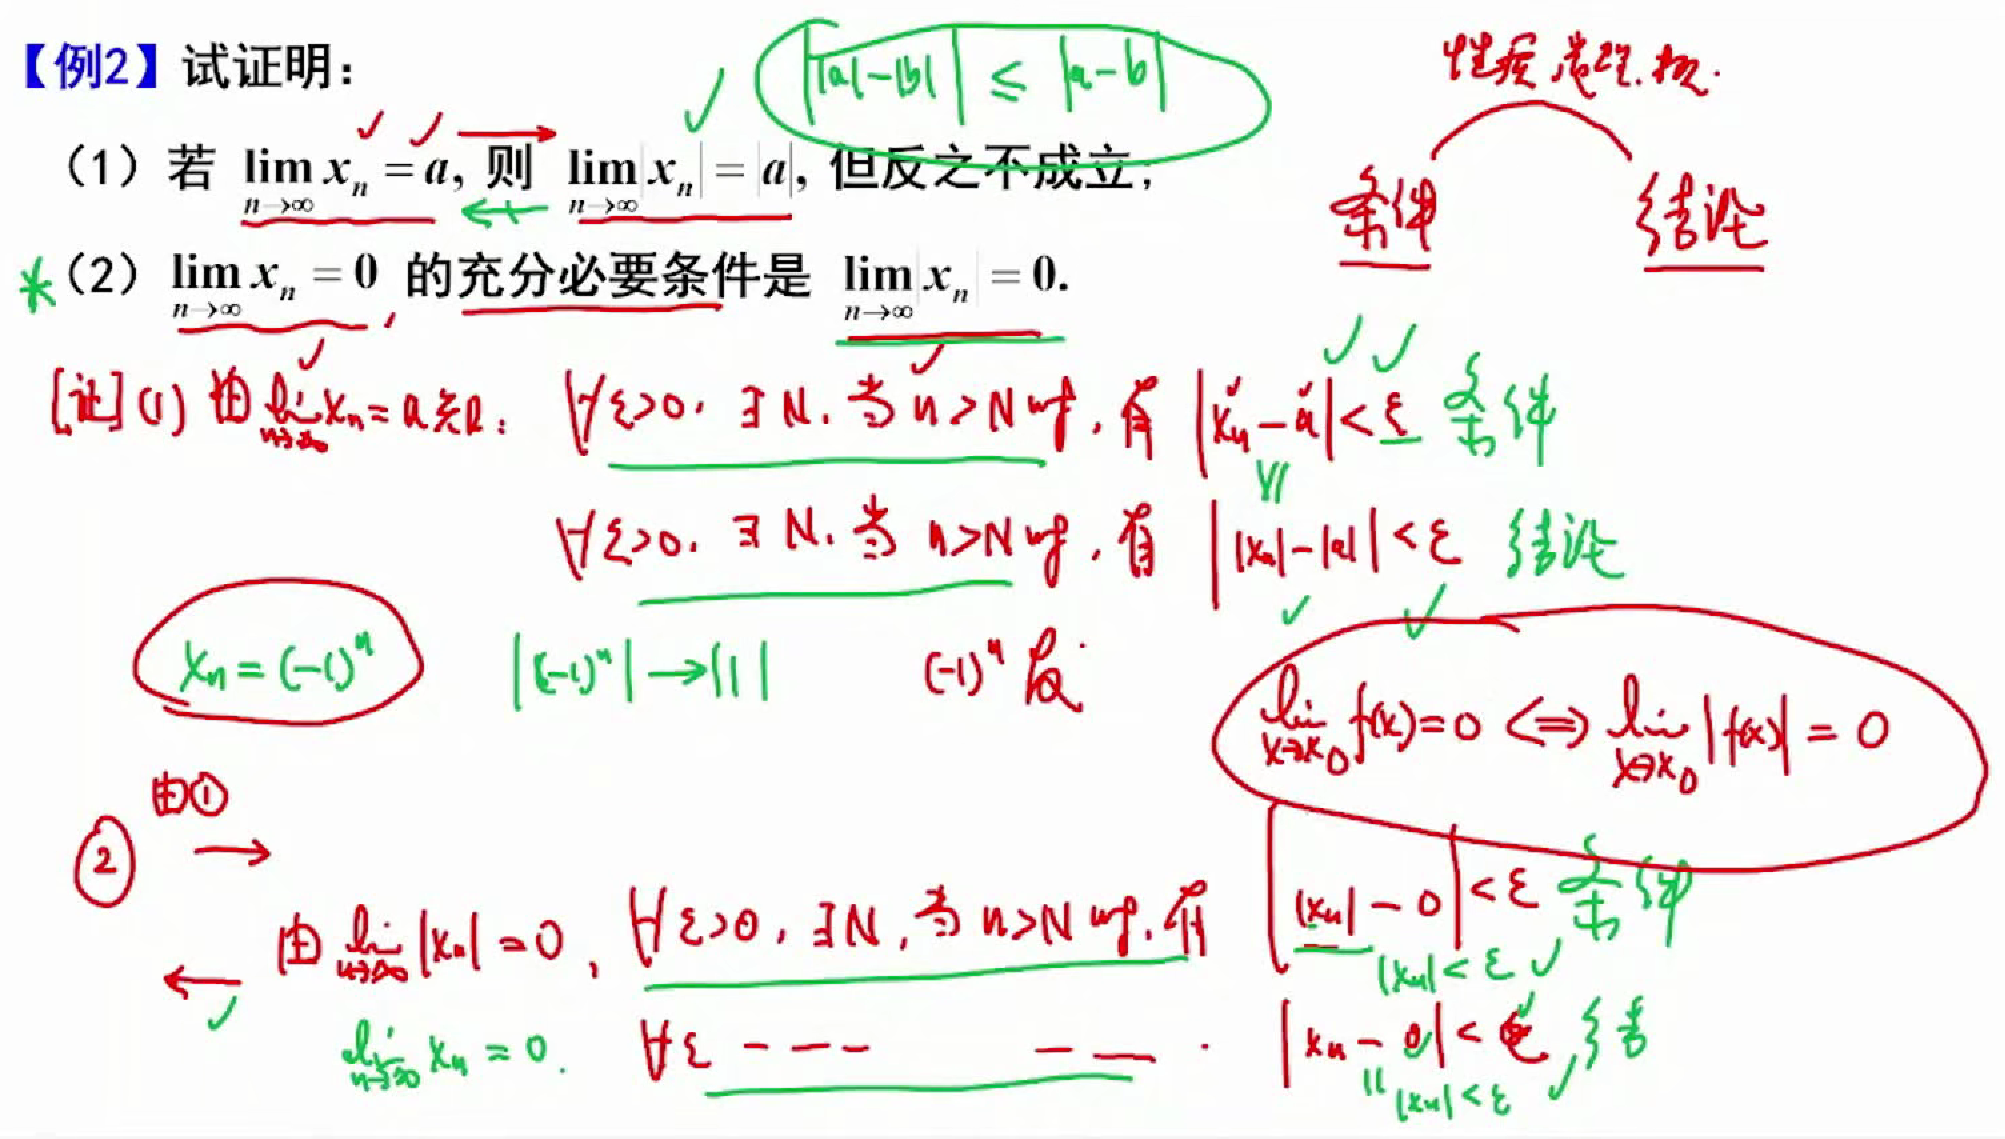 【例2】试证明：
||a|-|b|| ≤ |a-b|
（1）若 lim_{n→∞} x_n = a, 则 lim_{n→∞} |x_n| = |a|, 但反之不成立；
条件 结论
*（2）lim_{n→∞} x_n = 0 的充分必要条件是 lim_{n→∞} |x_n| = 0.
[证] (1) 由 lim_{n→∞} x_n = a 知: ∀ε>0, ∃N, 当 n>N 时, 有 |x_n - a| < ε 条件
∀ε>0, ∃N, 当 n>N 时, 有 ||x_n|-|a|| < ε 结论
x_n = (-1)^n |(-1)^n| → |1| (-1)^n 发
lim_{x→x_0} f(x) = 0 ⟺ lim_{x→x_0} |f(x)| = 0
由①
② →
由 lim_{n→∞} |x_n| = 0, ∀ε>0, ∃N, 当 n>N 时, 有 ||x_n| - 0| < ε 条件
← |x_n| < ε
lim_{n→∞} x_n = 0. ∀ε --- -- . |x_n - 0| < ε 结
|x_n| < ε